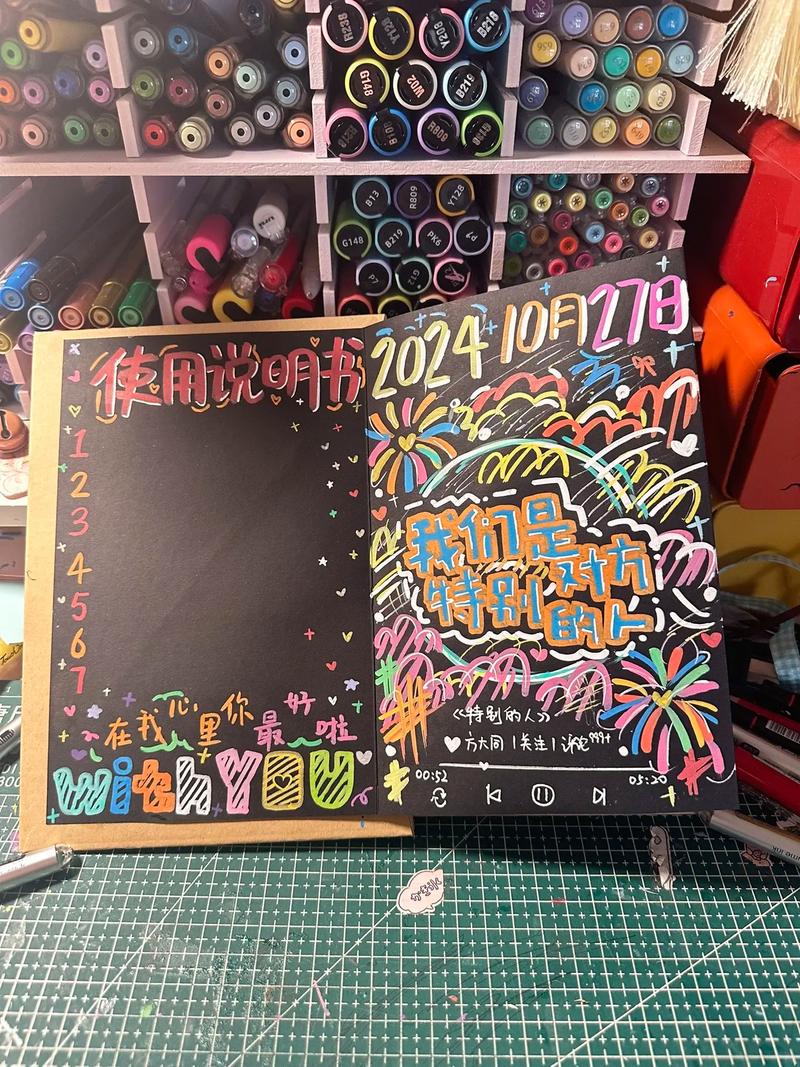 R238
Y128
Y208
B218
G148
W02
B219
R809
B13
R809
Y128
G148
B219
PK6
G12
使用说明书
1
2
3
4
5
6
7
在我心里你最好啦
with YOU
2024 10月27日
我们是对方
特别的人
《特别的人》
方大同 | 关注 | 评论999+
00:52 05:20